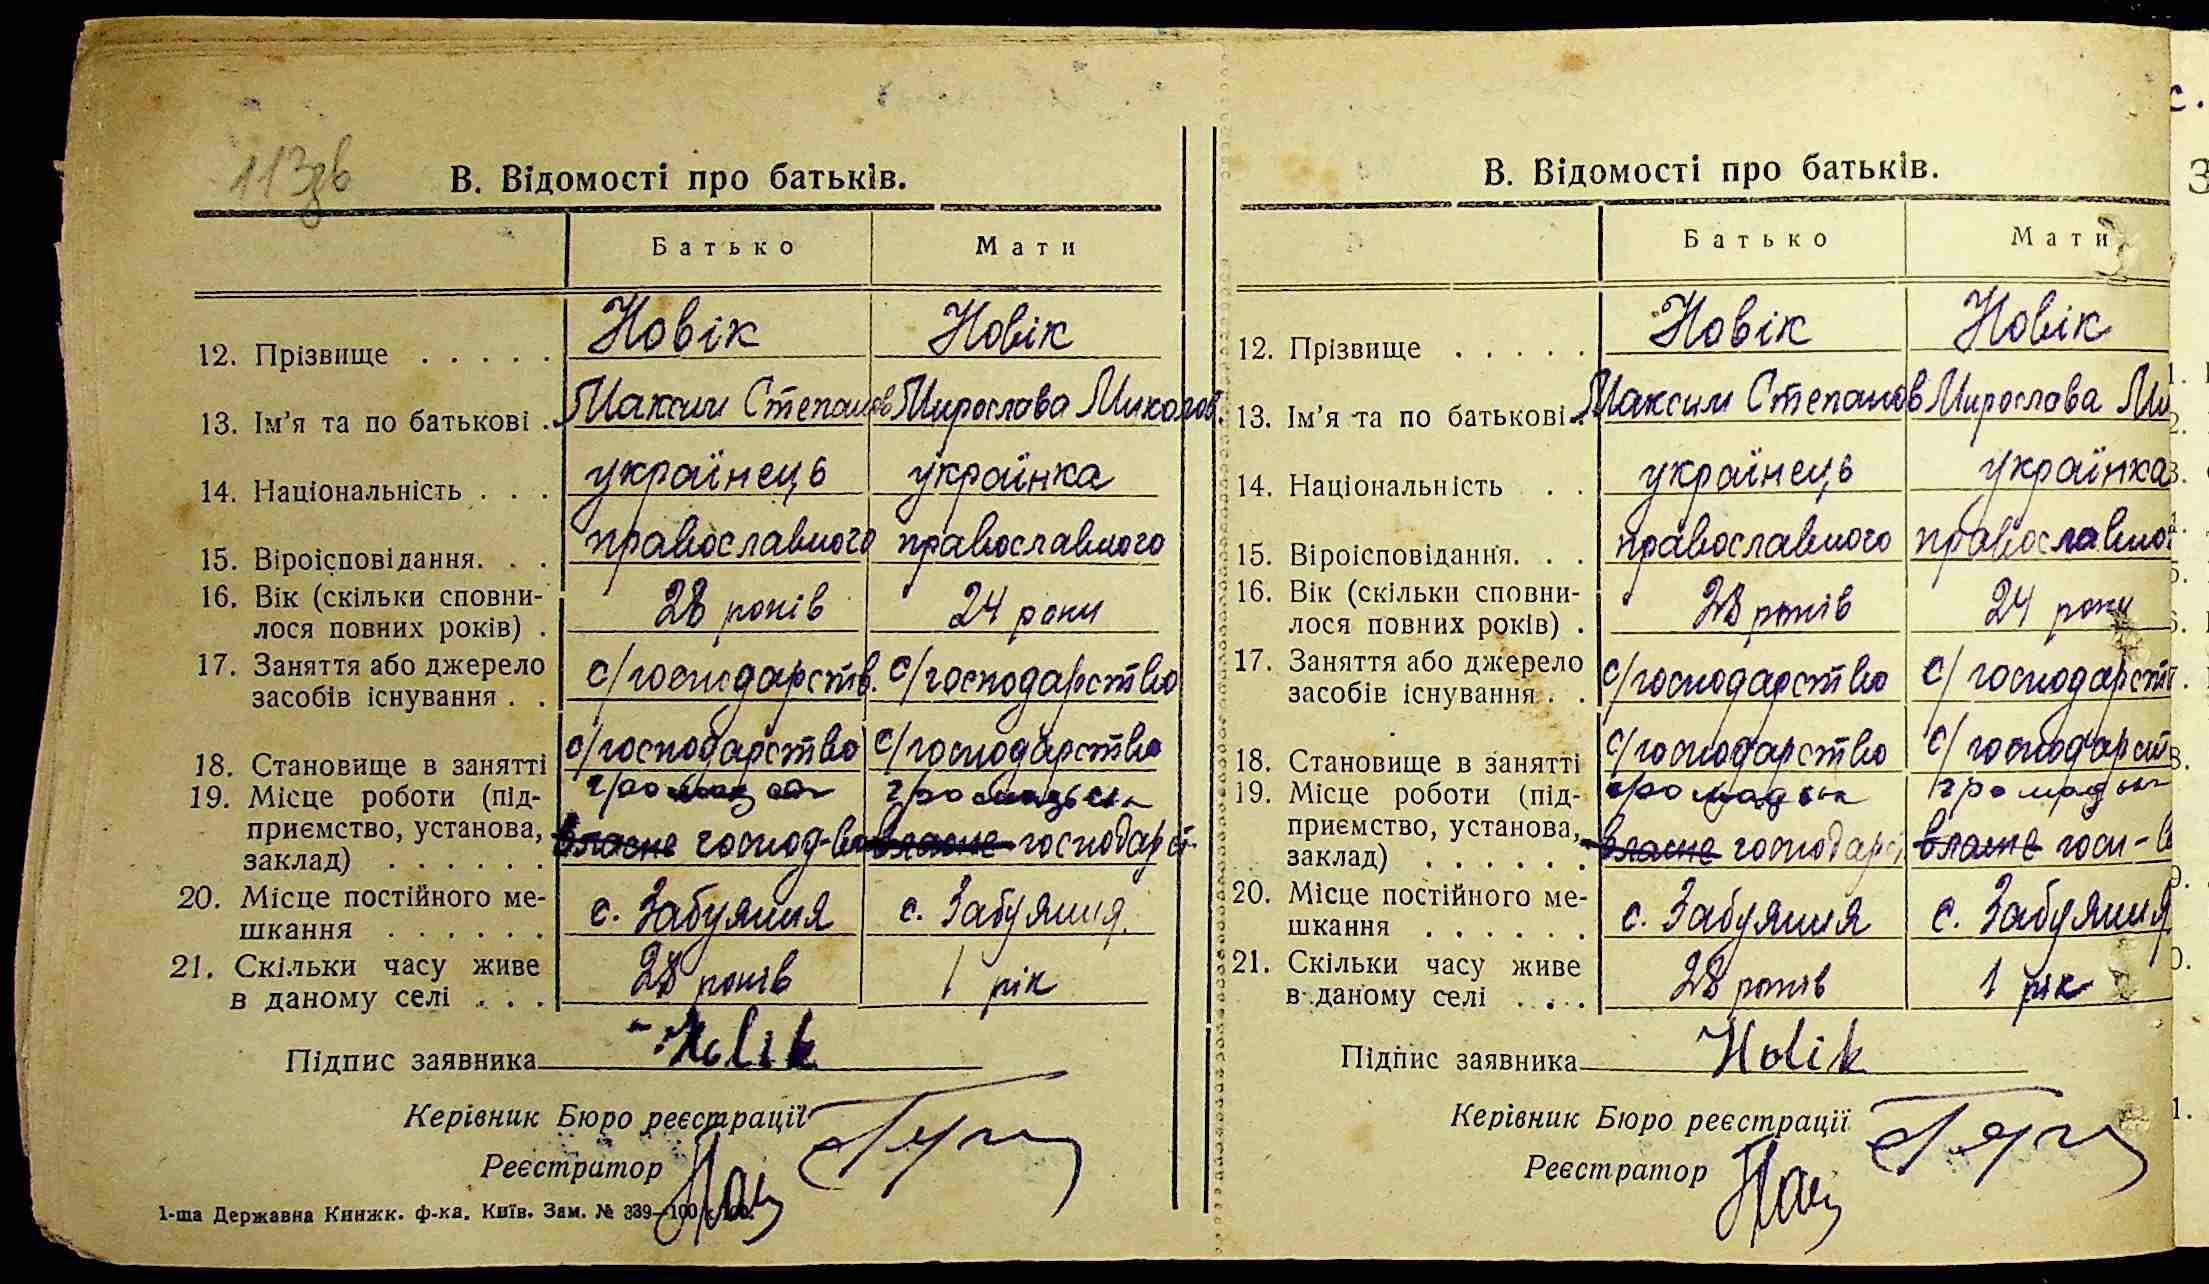 113зв
В. Відомості про батьків.
Батько Мати
12. Прізвище . . . . . Новік Новік
13. Ім'я та по батькові . Максим Степанов Мирослава Миколов.
14. Національність . . . українець українка
15. Віроісповідання. . . православного православного
16. Вік (скільки сповни-
лося повних років) . 28 років 24 роки
17. Заняття або джерело
засобів існування . . с/господарств. с/господарство
18. Становище в занятті с/господарство с/господарство
19. Місце роботи (під-
приємство, установа,
заклад) . . . . . . власне господ-во власне господарст.
20. Місце постійного ме-
шкання . . . . . . с. Забуяння с. Забуяння.
21. Скільки часу живе
в даному селі . . . 28 років 1 рік
Підпис заявника Новік
Керівник Бюро реєстрації
Реєстратор
1-ша Державна Книжк. ф-ка. Київ. Зам. № 339—100
В. Відомості про батьків.
Батько Мати
12. Прізвище . . . . . Новік Новік
13. Ім'я та по батькові . Максим Степанов Мирослава Ми
14. Національність . . українець українка
15. Віроісповідання. . . православного православно
16. Вік (скільки сповни-
лося повних років) . 28 років 24 роки
17. Заняття або джерело
засобів існування . . с/господарство с/господарств
18. Становище в занятті с/господарство с/господарст
19. Місце роботи (під-
приємство, установа,
заклад) . . . . . . власне господарс власне госп-в
20. Місце постійного ме-
шкання . . . . . . с. Забуяння с. Забуяння
21. Скільки часу живе
в даному селі . . . 28 років 1 рік
Підпис заявника Новік
Керівник Бюро реєстрації
Реєстратор